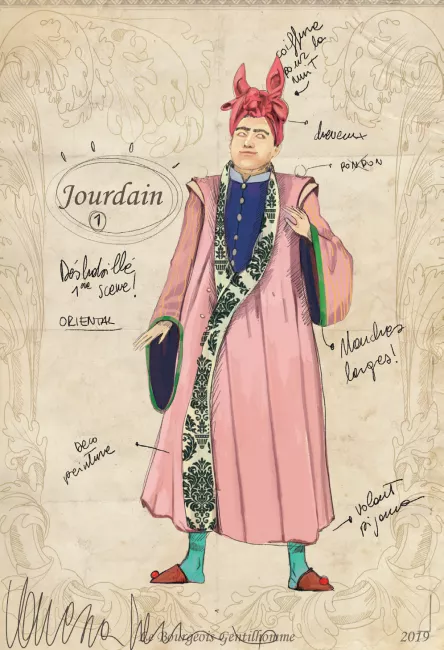 coiffure
pour la
nuit
cheveux
PONPON
Jourdain
1
Déshabillé
1ère scene!
ORIENTAL
Manches
larges!
Deco
peinture
volant
pijama
Le Bourgeois Gentilhomme
2019